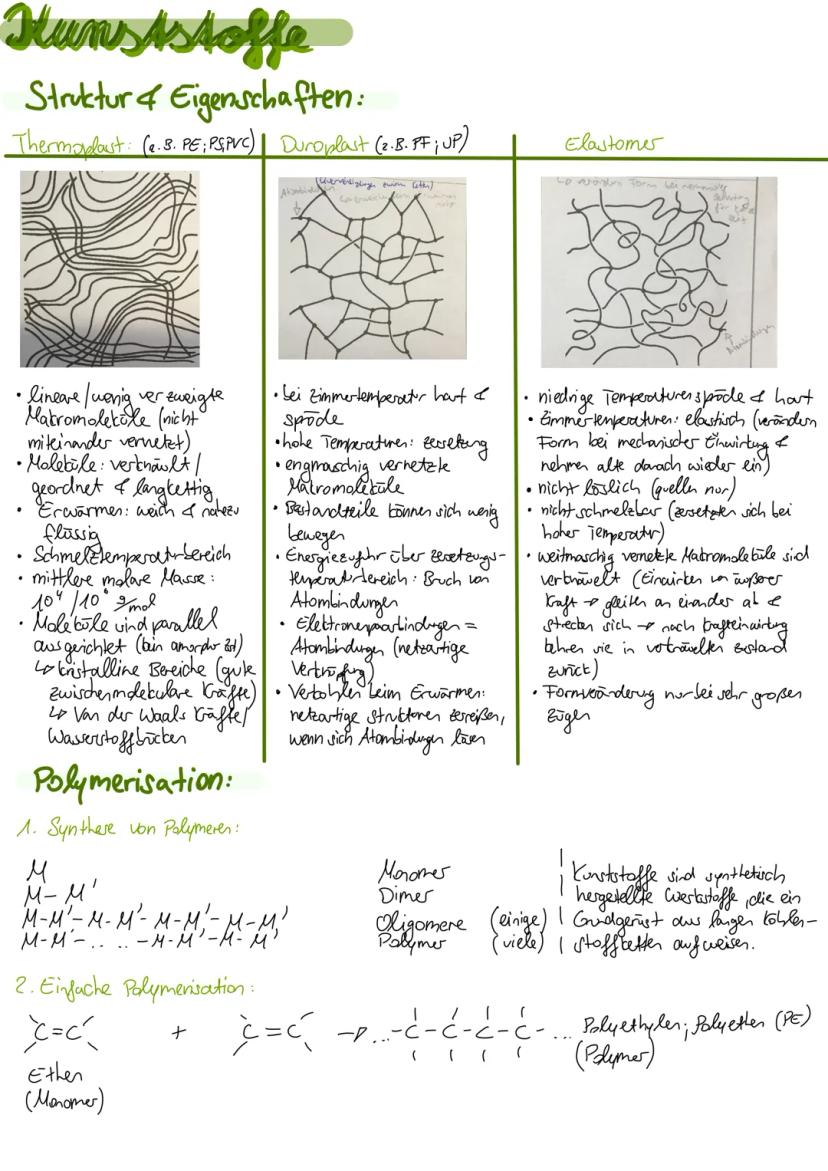 Kunststoffe
Struktur & Eigenschaften:
Thermoplast: (z.B. PE; PS; PVC)
• lineare/wenig verzweigte
Makromoleküle (nicht
miteinander vernetzt)
• Moleküle: verknäult/
geordnet & langkettig
• Erwärmen: weich & nahezu
flüssig
• Schmelztemperaturbereich
• mittlere molare Masse:
10⁴/10⁶ g/mol
• Moleküle sind parallel
ausgerichtet (bin amorpher Zst)
↳ kristalline Bereiche (gute
zwischenmolekulare Kräfte)
↳ Van der Waals Kräfte/
Wasserstoffbrücken
Duroplast (z.B. PF; UP)
Atombindungen
• bei Zimmertemperatur hart &
spröde
• hohe Temperaturen: Zersetzung
• engmaschig vernetzte
Makromoleküle
• Bestandteile können sich wenig
bewegen
• Energiezufuhr über Zersetzungs-
temperaturbereich: Bruch von
Atombindungen
• Elektronenpaarbindungen =
Atombindungen (netzartige
Verknüpfung)
• Verkohlen beim Erwärmen:
netzartige Strukturen zerreißen,
wenn sich Atombindungen lösen
Elastomer
Atombindungen
• niedrige Temperaturen spröde & hart
• Zimmertemperaturen: elastisch (verändern
Form bei mechanischer Einwirkung &
nehmen alte danach wieder ein)
• nicht löslich (quellen nur)
• nicht schmelzbar (zersetzen sich bei
hoher Temperatur)
• weitmaschig vernetzte Makromoleküle sind
verknäuelt (Einwirken von äußerer
Kraft → gleiten an einander ab &
strecken sich → nach Krafteinwirkung
kehren sie in verknäuelten Zustand
zurück)
• Formveränderung nur bei sehr großen
Zügen
Polymerisation:
1. Synthese von Polymeren:
M Monomer
M-M' Dimer
M-M'-M-M'-M-M'-M-M' Oligomere (einige)
M-M'-.. ..-M-M'-M-M' Polymer (viele)
Kunststoffe sind synthetisch
hergestellte Werkstoffe, die ein
Grundgerüst aus langen Kohlen-
stoffketten aufweisen.
2. Einfache Polymerisation:
C=C + C=C → ...-C-C-C-C-... Polyethylen; Polyethen (PE)
(Polymer)
Ethen
(Monomer)